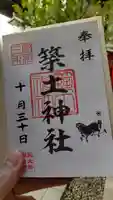 奉拝
築土神社
十月三十日